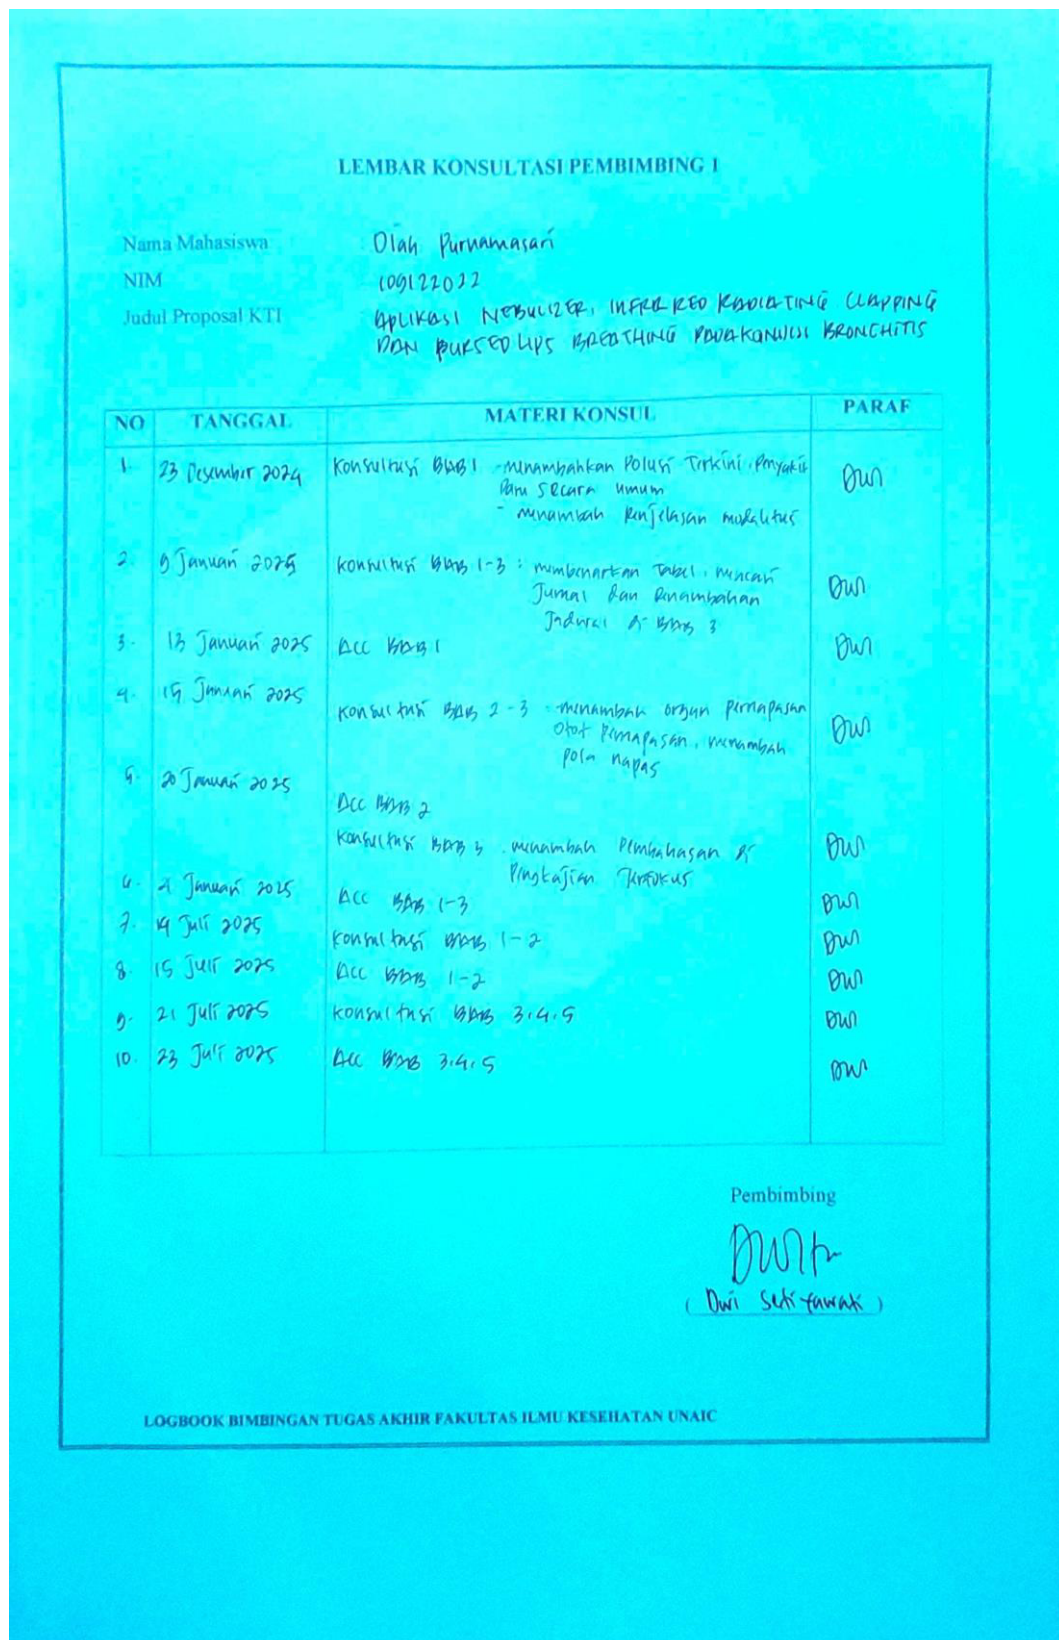 LEMBAR KONSULTASI PEMBIMBING 1
Nama Mahasiswa : Olah Purnamasari
NIM : 109122022
Judul Proposal KTI : APLIKASI NEBULIZER, INFRA RED RADIATING CLAPPING
DAN PURSED LIPS BREATHING PADA KONDISI BRONCHITIS
NO TANGGAL MATERI KONSUL PARAF
1. 23 Desember 2024 Konsultasi BAB 1 - menambahkan Polusi Terkini, Penyakit
Paru secara umum
- menambah Penjelasan modalitas
2. 9 Januari 2025 Konsultasi BAB 1-3 : membenarkan Tabel, mencari
Jurnal dan Penambahan
di BAB 3
3. 13 Januari 2025 Acc BAB 1
4. 15 Januari 2025
Konsultasi BAB 2-3 : menambah organ pernapasan
Otot Pernapasan, menambah
pola napas
5. 20 Januari 2025
Acc BAB 2
Konsultasi BAB 3 : menambah Pembahasan di
Pengkajian Terfokus
6. Januari 2025 Acc BAB 1-3
7. 14 Juli 2025 Konsultasi BAB 1-2
8. 15 Juli 2025 Acc BAB 1-2
9. 21 Juli 2025 Konsultasi BAB 3.4.5
10. 23 Juli 2025 Acc BAB 3.4.5
Pembimbing
( Dwi Setiyawati )
LOGBOOK BIMBINGAN TUGAS AKHIR FAKULTAS ILMU KESEHATAN UNAIC